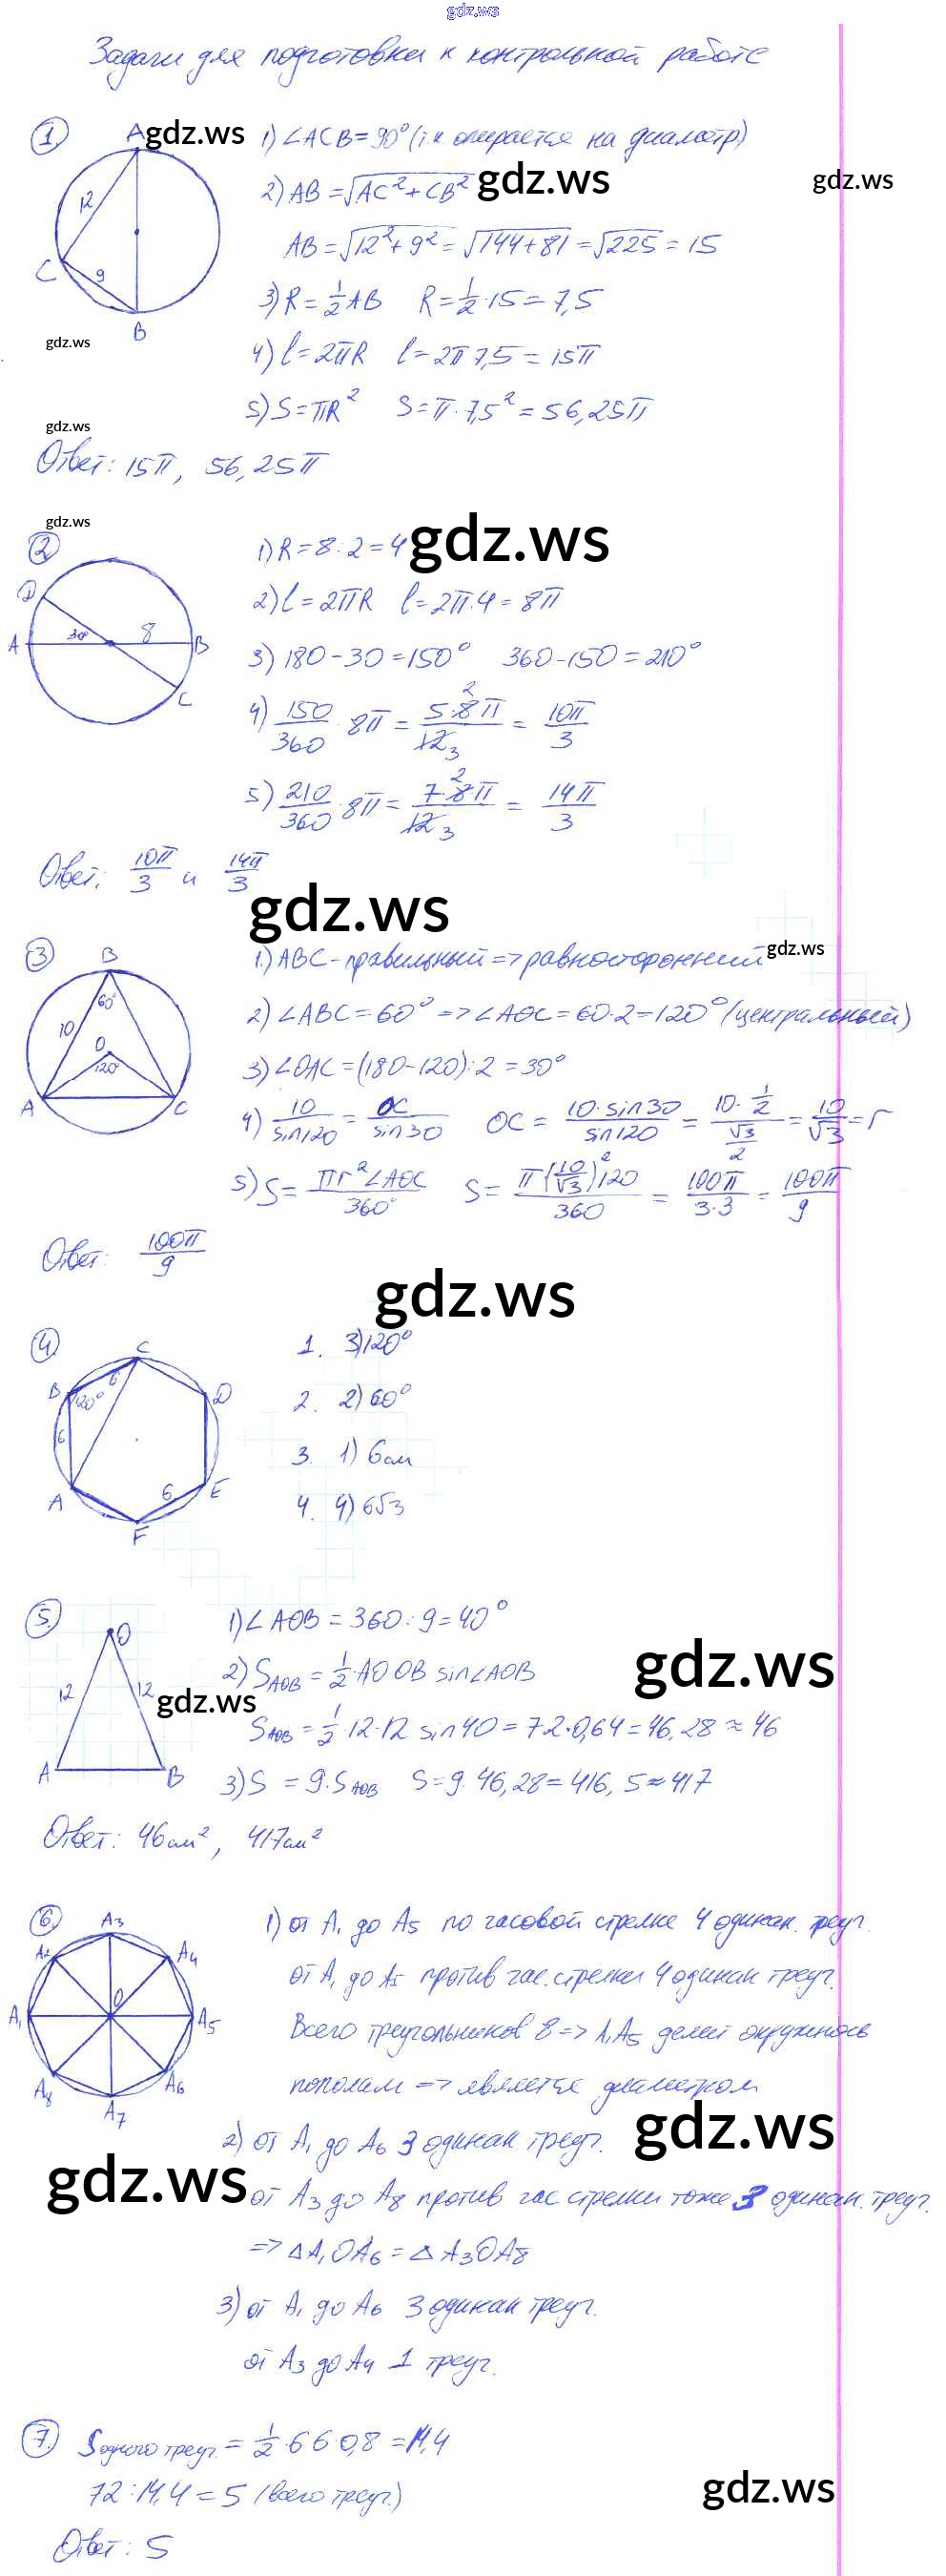 gdz.ws
Задачи для подготовки к контрольной работе
1.
A
12
C
9
B
gdz.ws
1) ∠ACB = 90° (т.к опирается на диаметр)
2) AB = √AC² + CB²
gdz.ws
gdz.ws
AB = √12² + 9² = √144 + 81 = √225 = 15
3) R = 1/2 AB R = 1/2 · 15 = 7,5
gdz.ws
4) l = 2πR l = 2π 7,5 = 15π
5) S = πR² S = π · 7,5² = 56,25π
gdz.ws
Ответ: 15π, 56,25π
gdz.ws
2
D
A
30°
8
B
C
1) R = 8 : 2 = 4
gdz.ws
2) l = 2πR l = 2π·4 = 8π
3) 180 - 30 = 150° 360 - 150 = 210°
4) 150/360 · 8π = 5·8π/12 = 10π/3
2
3
5) 210/360 · 8π = 7·8·π/12 = 14π/3
2
3
Ответ: 10π/3 и 14π/3
gdz.ws
3
B
60°
10
O
120°
A
C
1.) ABC - правильный => равносторонний
gdz.ws
2) ∠ABC = 60° => ∠AOC = 60·2 = 120° (центральный)
3) ∠OAC = (180-120) : 2 = 30°
4) 10/sin120 = OC/sin30 OC = 10·sin30/sin120 = 10·1/2 / √3/2 = 10/√3 = r
5) S = πr²∠AOC/360° S = π(10/√3)²120/360 = 100π/3·3 = 100π/9
Ответ: 100π/9
gdz.ws
4.
C
B
6
120°
D
6
A
6
E
F
1. 3) 120°
2. 2) 60°
3. 1) 6см
4. 4) 6√3
5.
O
12
12
A
B
gdz.ws
1) ∠AOB = 360 : 9 = 40°
2) SAOB = 1/2 AO·OB sin∠AOB
gdz.ws
SAOB = 1/2 · 12·12 sin40 = 72·0,64 = 46,28 ≈ 46
3) S = 9·SAOB S = 9·46,28 = 416,5 ≈ 417
Ответ: 46см², 417см²
6.
A3
A2
A4
A1
O
A5
A8
A6
A7
1) от A1 до A5 по часовой стрелке 4 одинак. треуг.
от A1 до A5 против час. стрелки 4 одинак треуг.
Всего треугольников 8 => A1A5 делит окружность
пополам => является диаметром
gdz.ws
2) от A1 до A6 3 одинак треуг.
gdz.ws
от A3 до A8 против час стрелки тоже 3 одинак. треуг.
=> △A1OA6 = △A3OA8
3) от A1 до A6 3 одинак треуг.
от A3 до A4 1 треуг.
7.
Sодного треуг. = 1/2 · 6 6·0,8 = 14,4
72 : 14,4 = 5 (всего треуг.)
gdz.ws
Ответ: 5